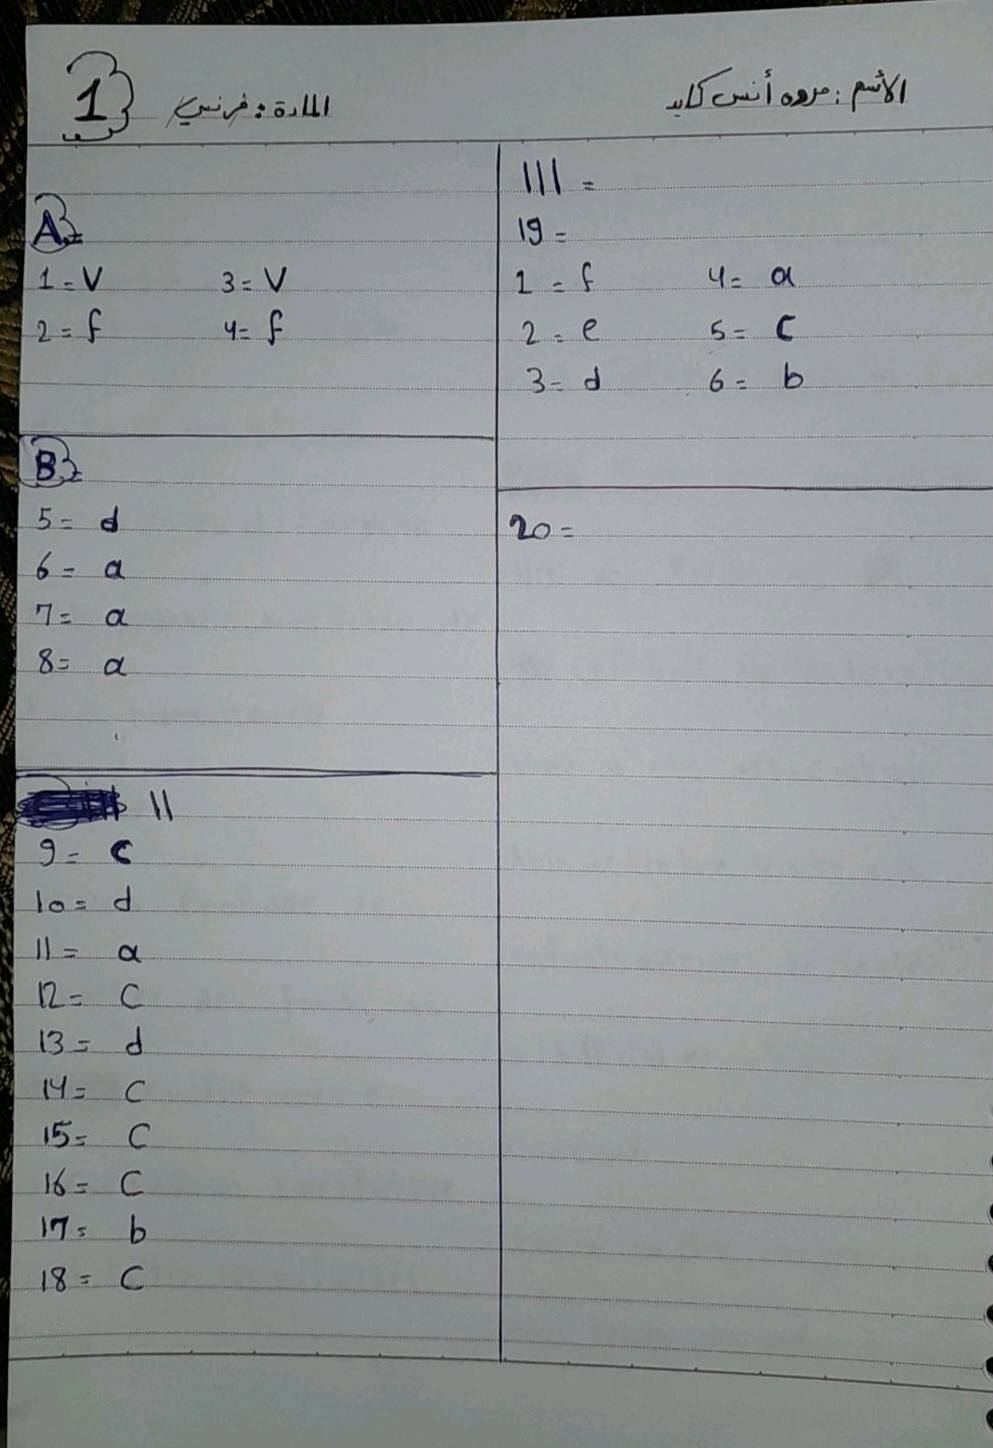 الأسم : مروه أنس كايد
المادة : فرنسي
1
A =
1 = V 3 = V
2 = f 4 = f
B =
5 = d
6 = a
7 = a
8 = a
11
9 = c
10 = d
11 = a
12 = C
13 = d
14 = C
15 = C
16 = C
17 = b
18 = C
111 =
19 =
1 = f 4 = a
2 = e 5 = C
3 = d 6 = b
20 =